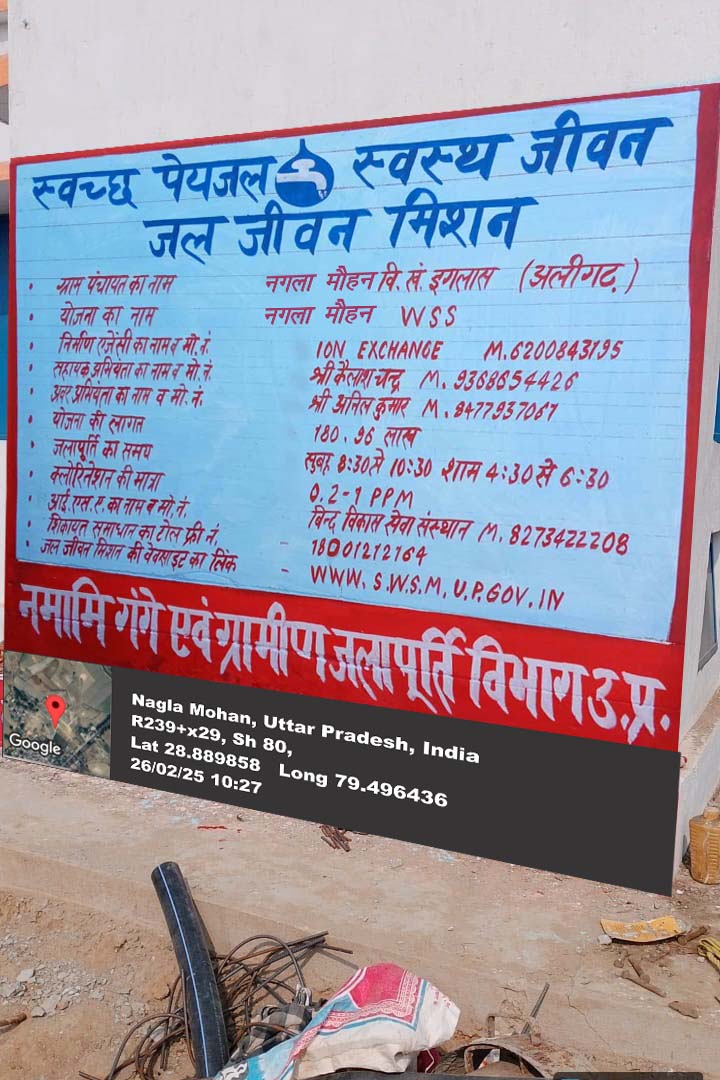 स्वच्छ पेयजल स्वस्थ जीवन
जल जीवन मिशन
• ग्राम पंचायत का नाम नगला मौहन वि. खं. इगलास (अलीगढ़)
• योजना का नाम नगला मौहन WSS
• निर्माण एजेंसी का नाम व मो. नं. ION EXCHANGE M.6200843195
• सहायक अभियंता का नाम व मो. नं. श्री कैलाश चन्द्र M. 9368654426
• अवर अभियंता का नाम व मो. नं. श्री अनिल कुमार M. 8477937067
• योजना की लागत 180.96 लाख
• जलापूर्ति का समय सुबह 8:30 से 10:30 शाम 4:30 से 6:30
• क्लोरिनेशन की मात्रा 0.2-1 PPM
• आई.एस.ए. का नाम व मो. नं. बिन्दु विकास सेवा संस्थान M. 8273422208
• शिकायत समाधान का टोल फ्री नं. - 18001212164
• जल जीवन मिशन की वेबसाइट का लिंक - WWW.S.W.S.M,U.P.GOV.IN
नमामि गंगे एवं ग्रामीण जलापूर्ति विभाग उ.प्र.
Google
Nagla Mohan, Uttar Pradesh, India
R239+x29, Sh 80,
Lat 28.889858 Long 79.496436
26/02/25 10:27